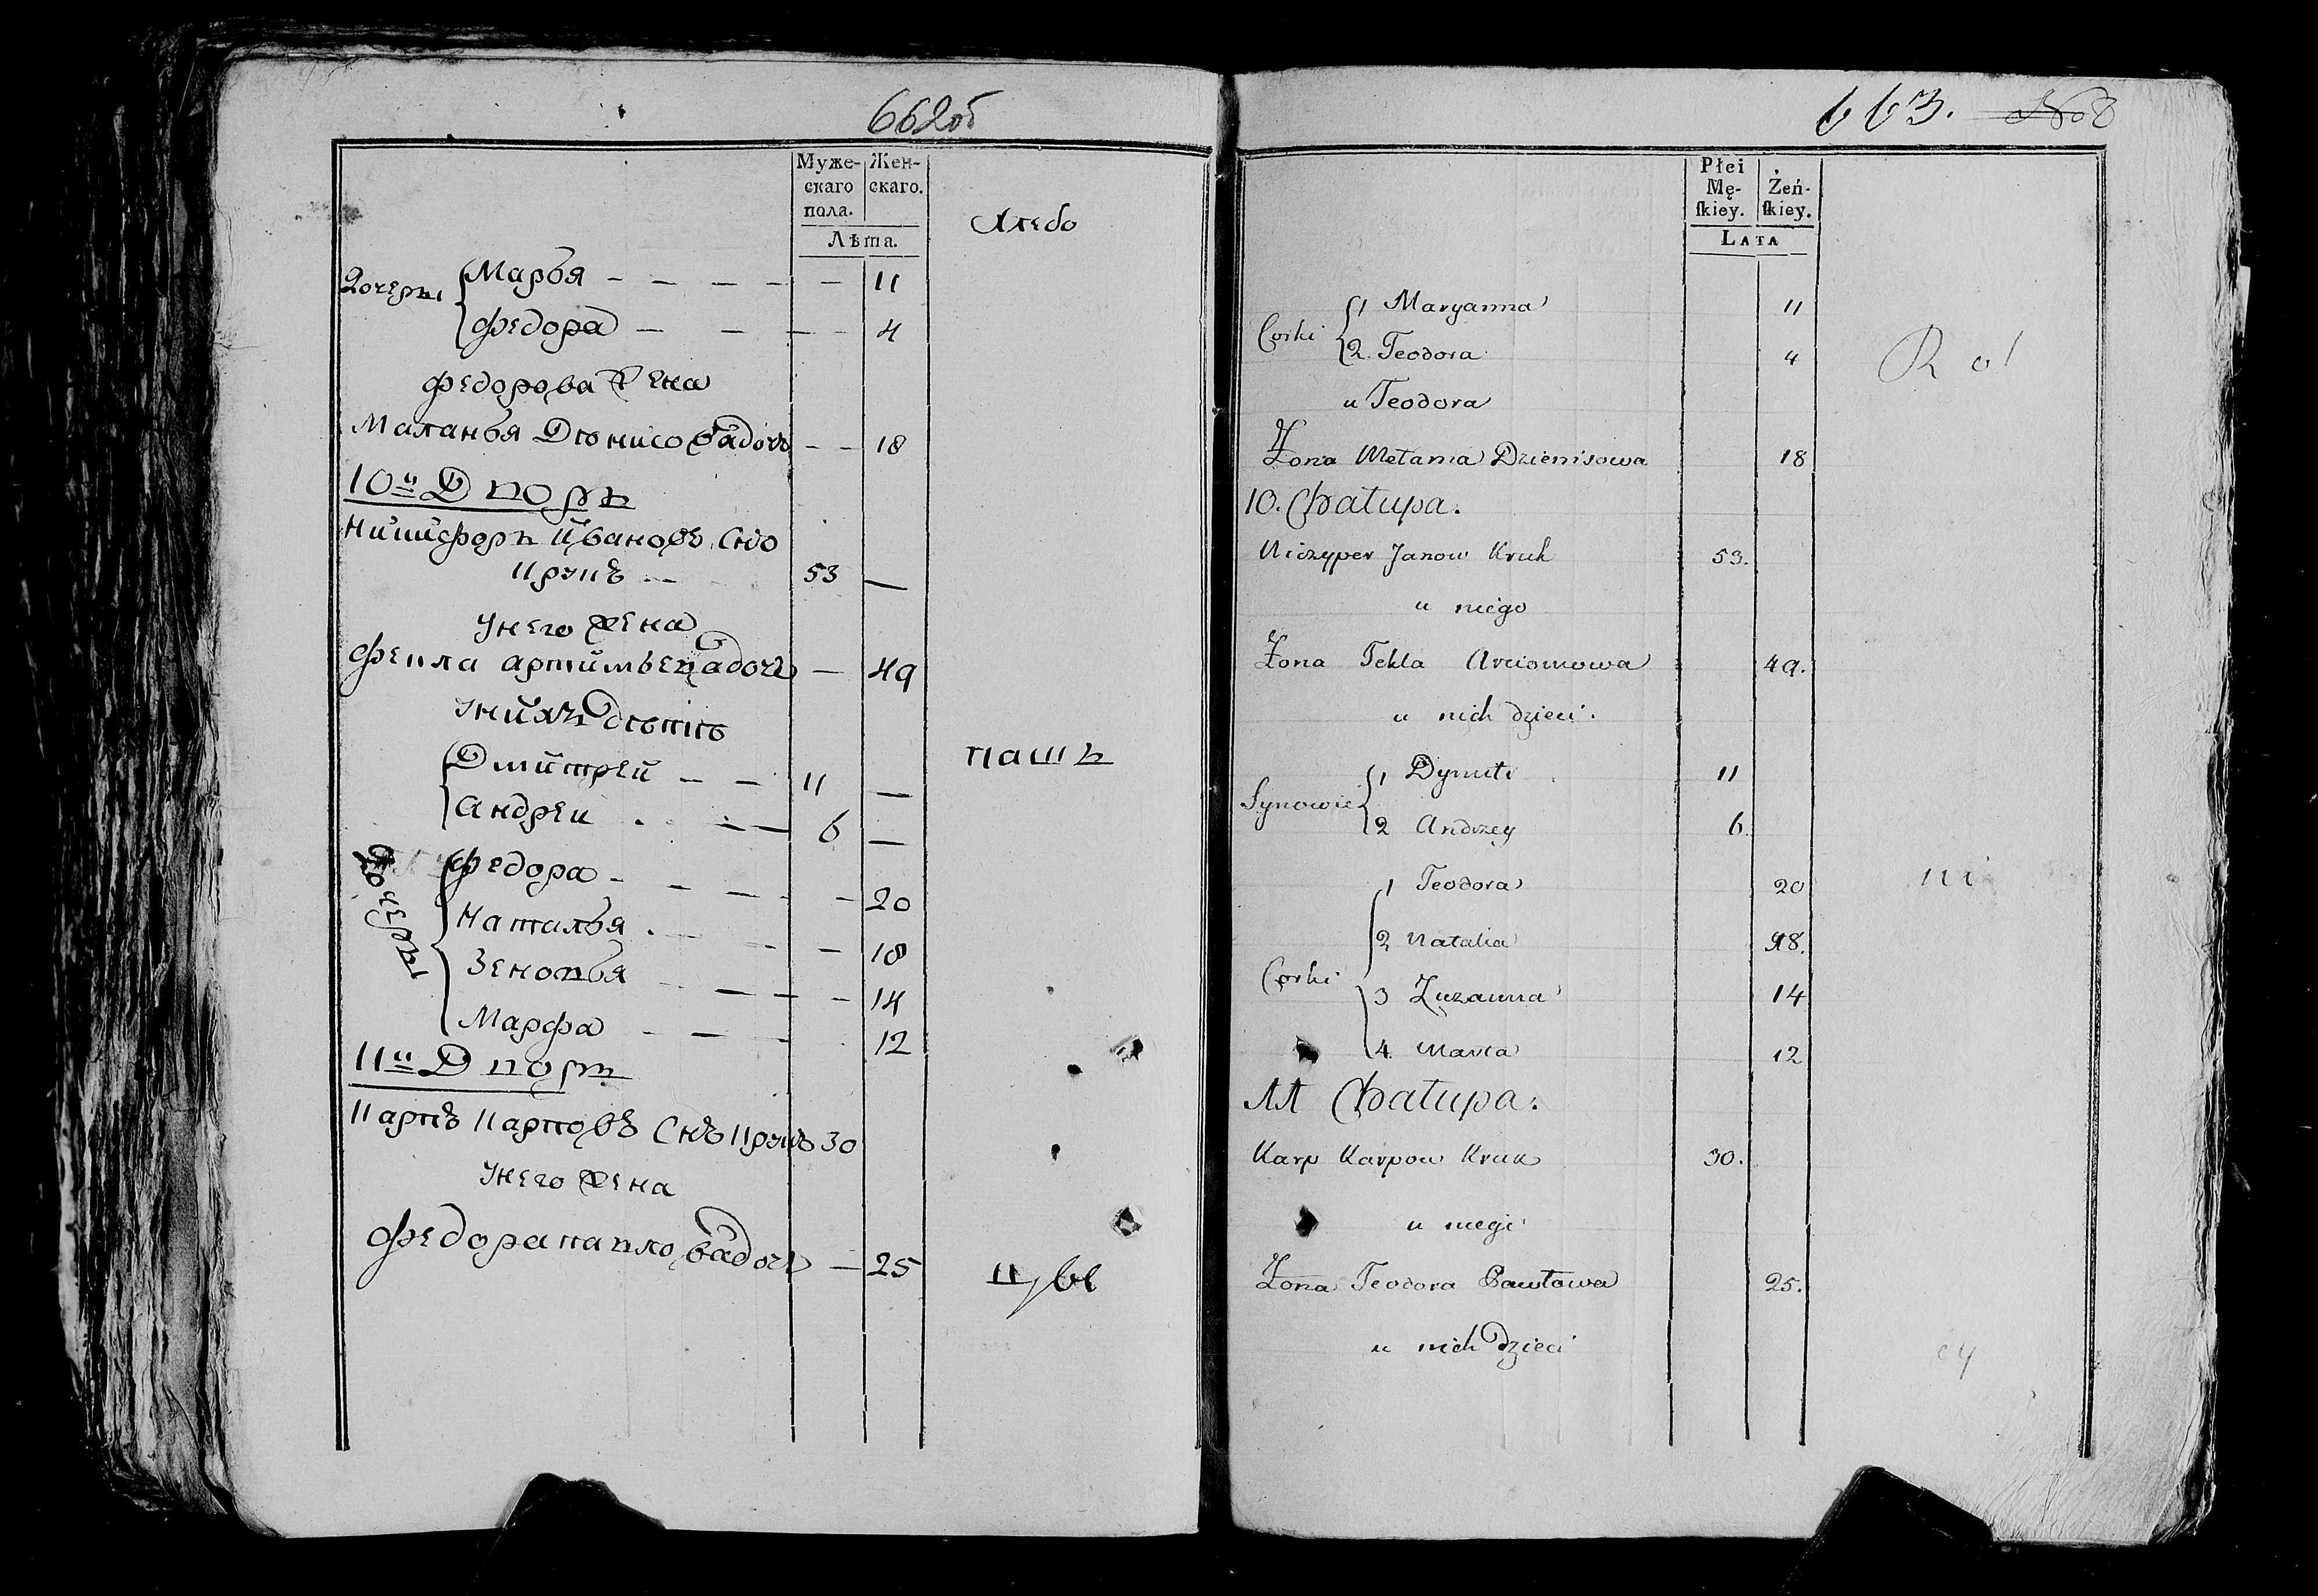 662об
Муже-
скаго
пола.
Жен-
скаго.
Лѣта.
Хлебо
Дочери
Марья — — — — — 11
Федора — — — — 4
Федорова жена
Маланья Дѣнисова дочь — — 18
10й Дворъ
Ничипоръ Ивановъ Снъ
Крукъ — 53 —
У него жена
Фекла Артимьева дочь — 49
У нихъ дѣти
Дмитрей — — 11 —
Андрей — — 6 —
Дочери
Федора — — — — 20
Наталья — — — 18
Зеновья — — — 14
Марфа — — — 12
пашъ
11й Дворъ
Карпъ Карповъ Снъ Крукъ 30
У него жена
Федора Павлова дочь — 25
цы
663. No 8
Płci
Mę-
ſkiey.
Żeń-
ſkiey.
LATA
Corki
1 Maryanna 11
2. Teodora 4
Rol
u Teodora
Żona Melania Dzienisowa 18
10. Chałupa.
Niczyper Janow Kruk 53.
u niego
Żona Tekla Arciomowa 49.
u nich dzieci.
Synowie
1 Dymitr 11
2 Andrzey 6.
Corki
1 Teodora 20
2 Natalia 18.
3 Zuzanna 14
4 Marta 12
ni
11 Chałupa.
Karp Karpow Kruk 30.
u niego
Żona Teodora Pawłowa 25.
u nich Dzieci
cy